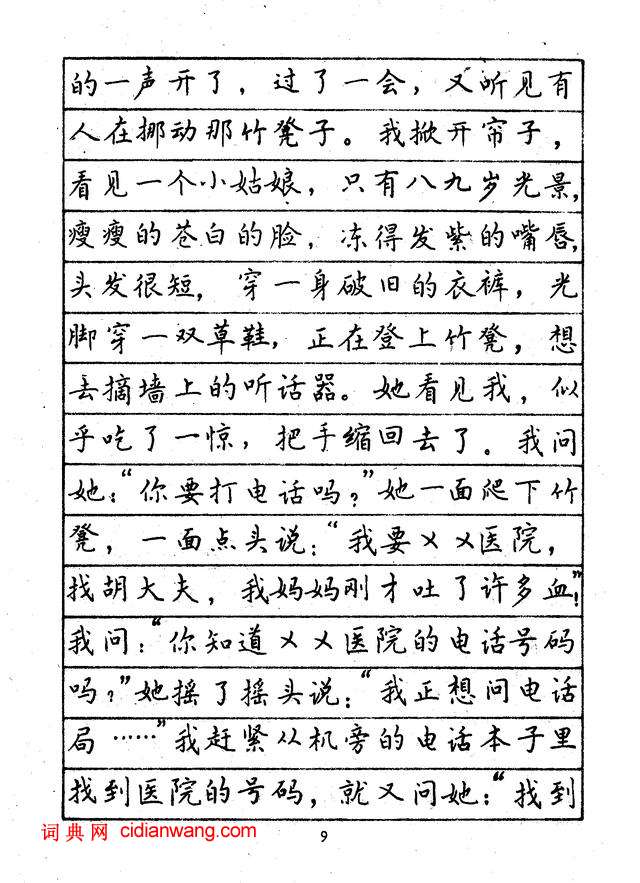 的一声开了，过了一会，又听见有
人在挪动那竹凳子。我掀开帘子，
看见一个小姑娘，只有八九岁光景，
瘦瘦的苍白的脸，冻得发紫的嘴唇，
头发很短，穿一身破旧的衣裤，光
脚穿一双草鞋，正在登上竹凳，想
去摘墙上的听话器。她看见我，似
乎吃了一惊，把手缩回去了。我问
她：“你要打电话吗？”她一面爬下竹
凳，一面点头说：“我要××医院，
找胡大夫，我妈妈刚才吐了许多血！”
我问：“你知道××医院的电话号码
吗？”她摇了摇头说：“我正想问电话
局……”我赶紧从机旁的电话本子里
找到医院的号码，就又问她：“找到
词典网 cidianwang.com
9